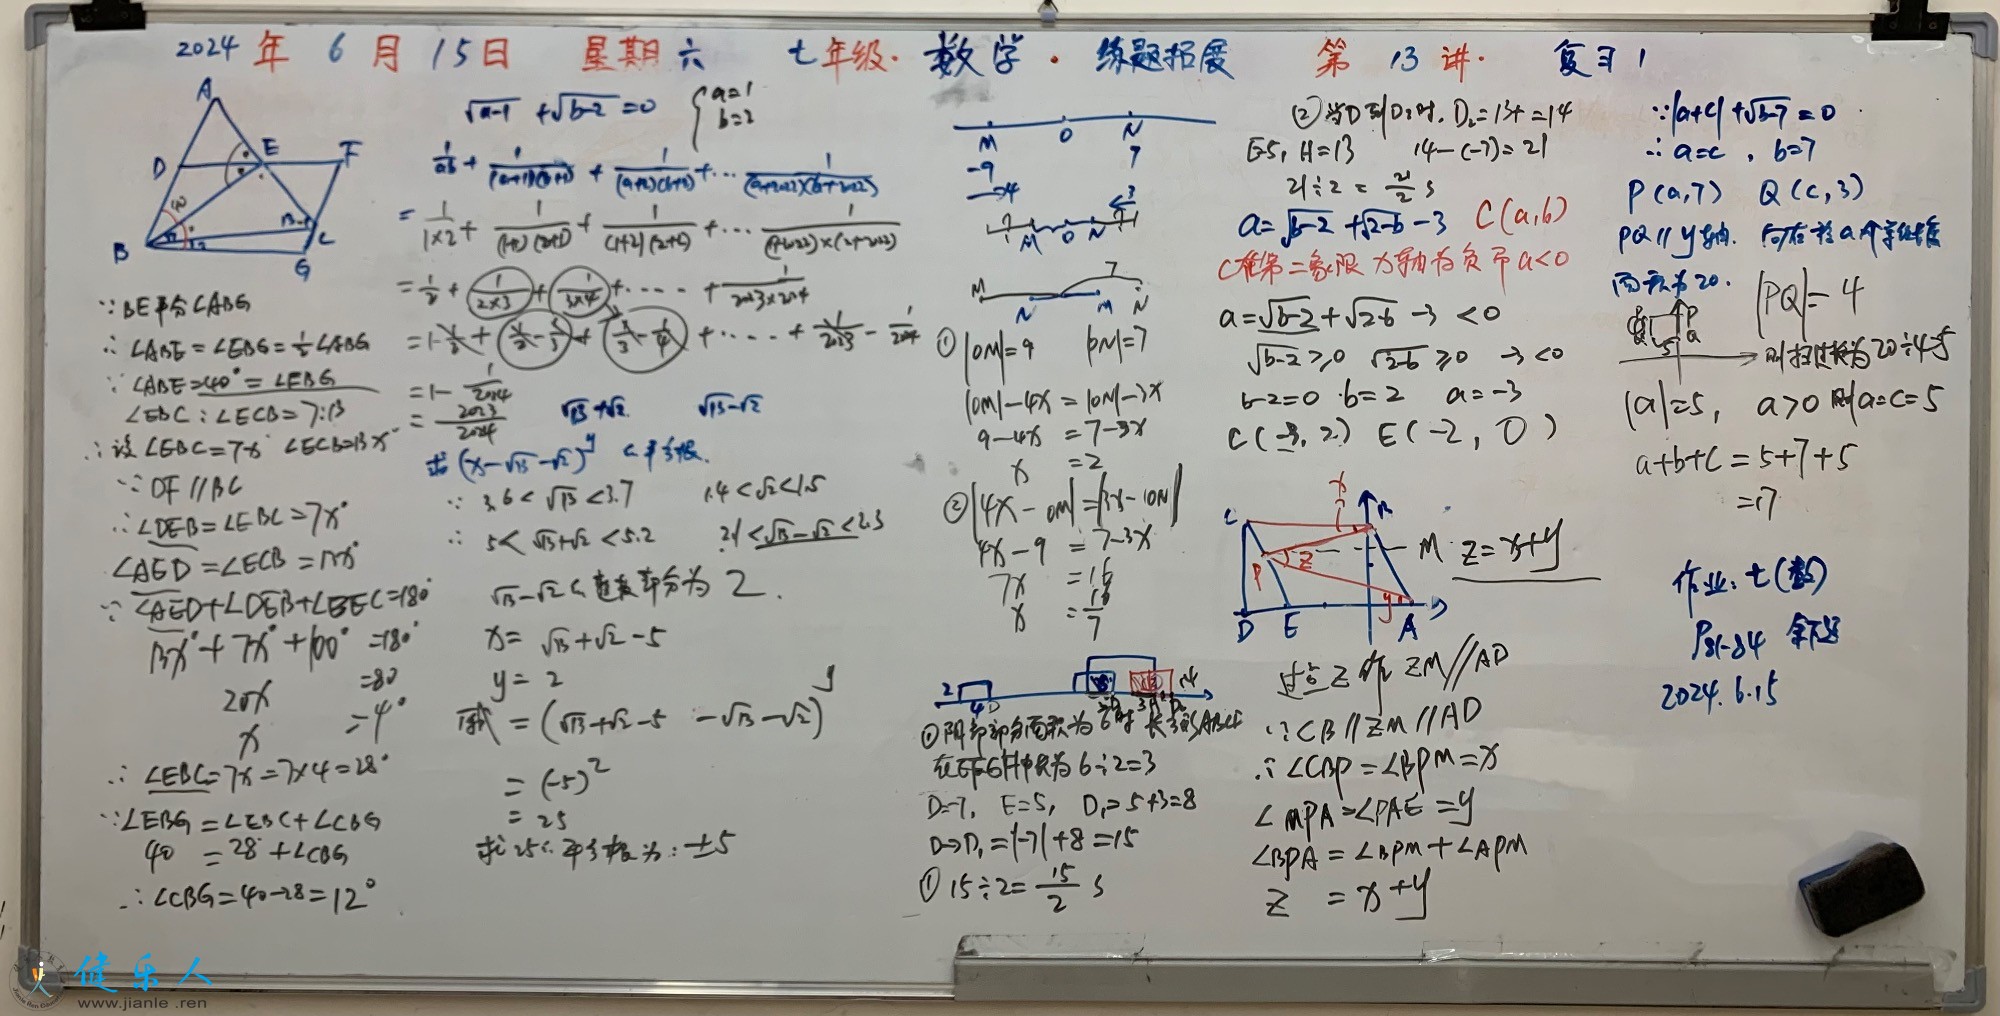 2024年6月15日 星期六 七年级·数学·练题拓展 第13讲· 复习1
A
D E F
40
B C
G
∵BE平分∠ABG
∴∠ABE=∠EBG=½∠ABG
∵∠ABE=40°=∠EBG
∠EBC:∠ECB=7:13
∴设∠EBC=7x° ∠ECB=13x°
∵DF//BC
∴∠DEB=∠EBC=7x°
∠AED=∠ECB=13x°
∵∠AED+∠DEB+∠BEC=180°
13x°+7x°+100°=180°
20x =80
x =4°
∴∠EBC=7x=7×4=28°
∵∠EBG=∠EBC+∠CBG
40 =28+∠CBG
∴∠CBG=40-28=12°
√a-1 +√b-2=0 {a=1 b=2
1/ab+1/(a+1)(b+1)+1/(a+2)(b+2)+…1/(a+2022)(b+2022)
=1/1×2+1/(1+1)(2+1)+1/(1+2)(2+2)+…1/(1+2022)×(2+2022)
=1/2+1/2×3+1/3×4+……+1/2023×2024
=1-1/2+1/2-1/3+1/3-1/4+……+1/2023-1/2024
=1-1/2024
=2023/2024 √13+√2 √13-√2
求(x-√13-√2)^y 平方根.
∵3.6<√13<3.7 1.4<√2<1.5
∴5<√13+√2<5.2 2.1<√13-√2<2.3
√13-√2 整数部分为2.
x=√13+√2-5
y=2
原式=(√13+√2-5 -√13-√2)^y
=(-5)²
=25
求25 平方根为:±5
M O N
-9 7
→4 ←3
M O N
7
M
N M N
①|OM|=9 |ON|=7
|OM|-4x=|ON|-3x
9-4x=7-3x
x=2
②|4x-OM|=|3x-ON|
4x-9=7-3x
7x=16
x=16/7
2
4 D
①阴影部分面积为6时 长方形ABCD
在EFGH中长为6÷2=3
D=-7, E=5, D₁=5+3=8
D→D₁=|-7|+8=15
①15÷2=15/2 s
②当D到D₂时. D₂=13+1=14
E=5, H=13 14-(-7)=21
21÷2=21/2 s
a=√b-2+√2-b-3 C(a,b)
C在第二象限 x轴为负 即a<0
a=√b-2+√2-b-3<0
√b-2≥0 √2-b≥0 -3<0
b-2=0 b=2 a=-3
C(-3,2) E(-2,0)
x
C B
P Z M z=x+y
y
D E A
过点Z作ZM//AD
∵CB//ZM//AD
∴∠CBP=∠BPM=x
∠MPA=∠PAE=y
∠BPA=∠BPM+∠APM
z =x+y
∵|a+c|+√b-7=0
∴a=c, b=7
P(a,7) Q(c,3)
PQ//y轴.
面积为20. |PQ|=4
P
Q 5 a
则 为20÷4=5
|a|=5, a>0则a=c=5
a+b+c=5+7+5
=17
作业:七(数)
P81-84
2024.6.15
健乐人
www.jianle.ren